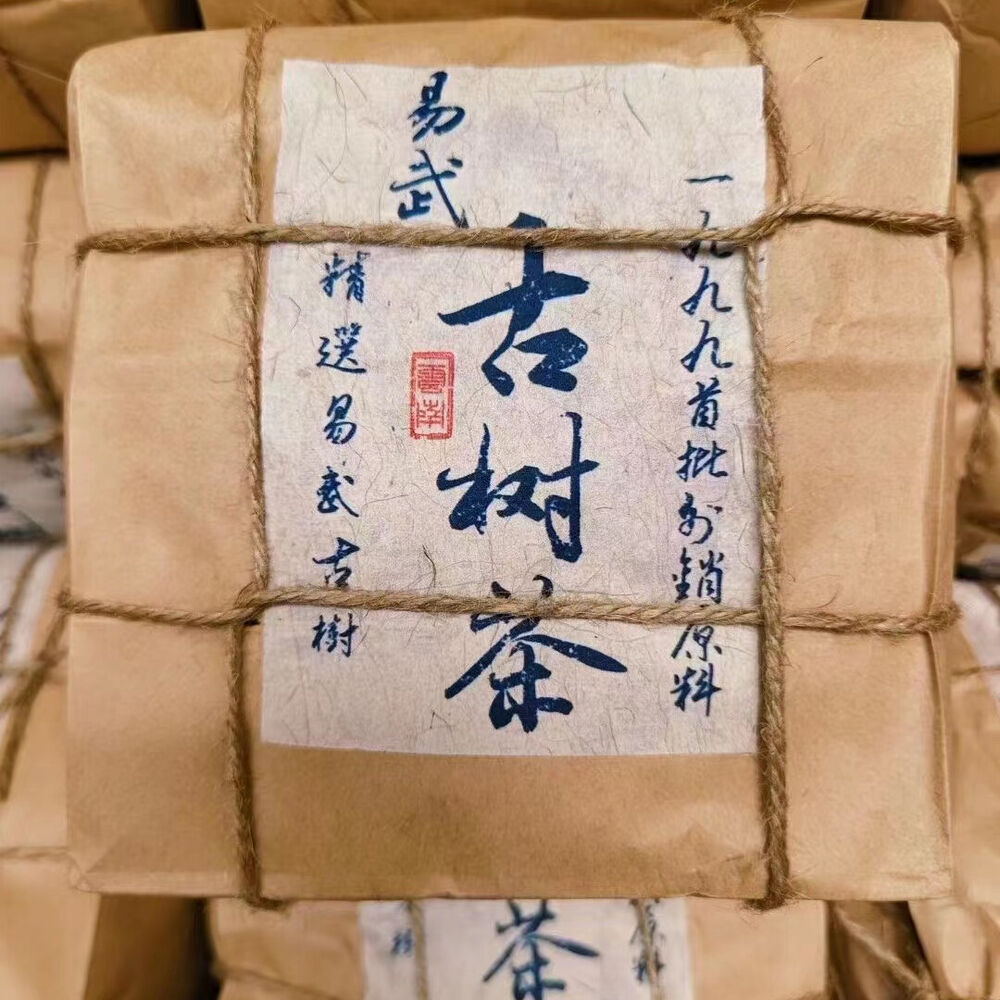 一九九九首批外銷原料
易武
古树茶
雲南
精選易武古樹
茶